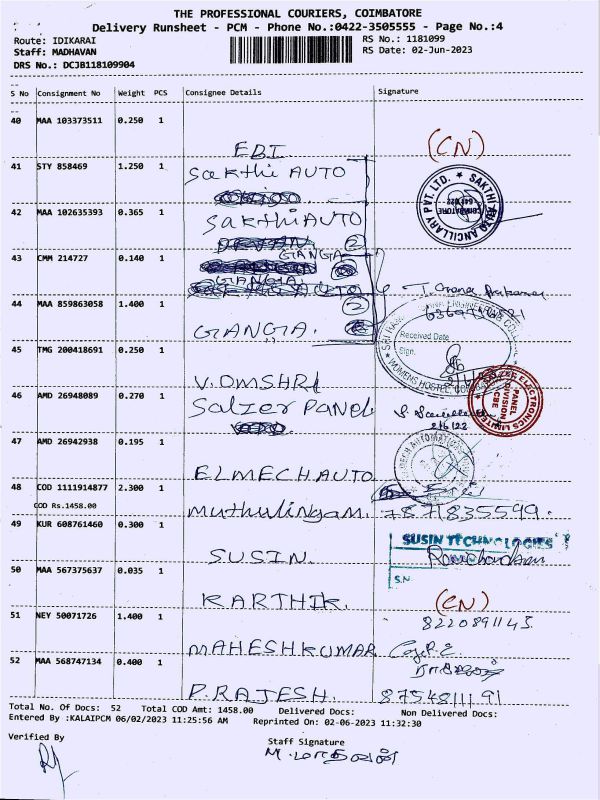 THE PROFESSIONAL COURIERS, COIMBATORE
Delivery Runsheet - PCM - Phone No.:0422-3505555 - Page No.:4
Route: IDIKARAI RS No.: 1181099
Staff: MADHAVAN RS Date: 02-Jun-2023
DRS No.: DCJB118109904
S No Consignment No Weight PCS Consignee Details Signature
40 MAA 103373511 0.250 1
EBI (CN)
41 STY 858469 1.250 1
Sakthi AUTO
SAKTHI AUTO ANCILLARY PVT. LTD. COIMBATORE
42 MAA 102635393 0.365 1
Sakthi AUTO
43 CMM 214727 0.140 1
GIANGA
GIANGA
44 MAA 859863058 1.400 1
GIANGIA.
Received Date
Sign.
WOMENS HOSTEL
45 TMG 200418691 0.250 1
V.OMSHRI
46 AMD 26948089 0.270 1
Salzer PANEL
SALZER ELECTRONICS LIMITED PANEL DIVISION CBE
47 AMD 26942938 0.195 1
ELMECH.AUTO
48 COD 1111914877 2.300 1
COD Rs.1458.00
Muthulingam. 7871835599.
49 KUR 608761460 0.300 1
SUSIN TECHNOLOGIES
SUSIN.
S.N.
50 MAA 567375637 0.035 1
KARTHIK. (CN)
51 NEY 50071726 1.400 1
8220891143
MAHESHKUMAR
52 MAA 568747134 0.400 1
P.RAJESH. 8754811191
Total No. Of Docs: 52 Total COD Amt: 1458.00 Delivered Docs: Non Delivered Docs:
Entered By :KALAIPCM 06/02/2023 11:25:56 AM Reprinted On: 02-06-2023 11:32:30
Verified By Staff Signature
M. மாதவன்